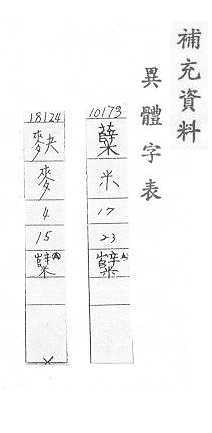 補充資料
異體字表
10173
糵
米
17
23
糱
18124
䴺
麥
4
15
糱